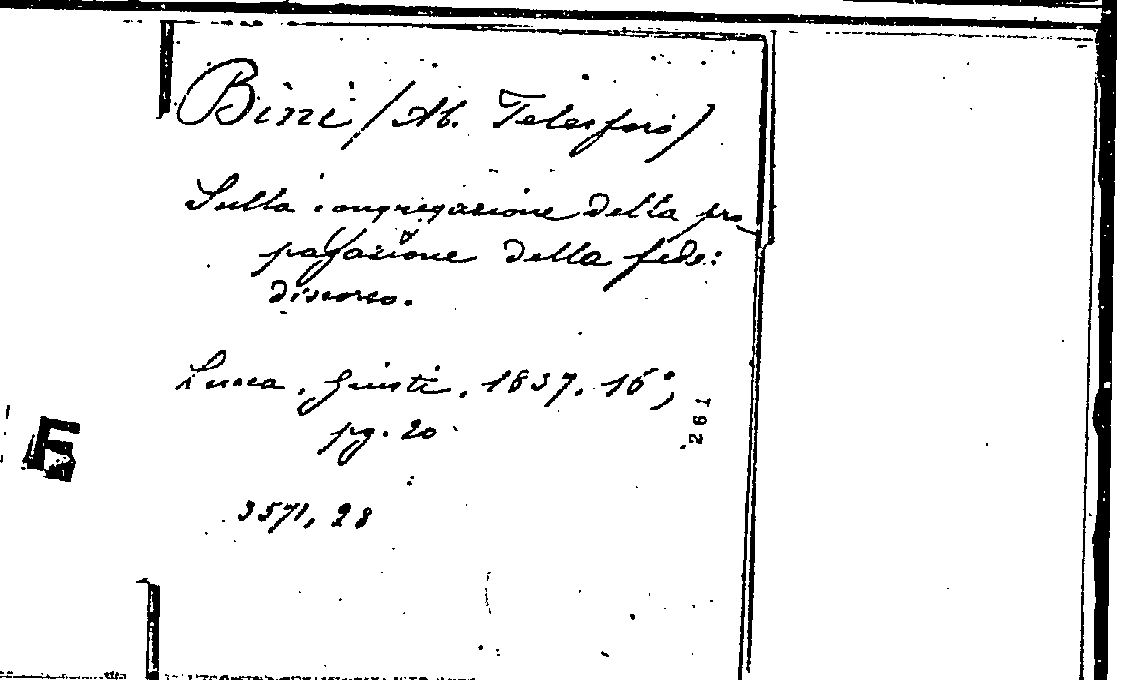 Bini (Ab. Telesforo)
Sulla congregazione della pro-
pagazione della fede:
discorso.
Lucca, Giusti, 1837. 16°,
pg. 20
3571, 28
261